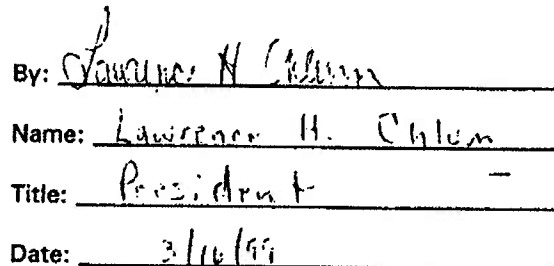 By: Lawrence H
Name: Lawrence H.
Title: President
Date: 3/16/99